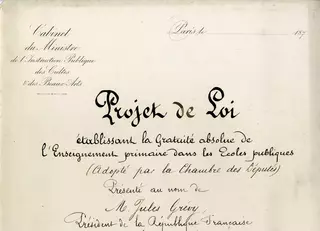 Cabinet
du Ministre
de l'Instruction Publique
des Cultes
& des Beaux-Arts
Paris, le 187
Projet de Loi
établissant la Gratuité absolue de
l'Enseignement primaire dans les Ecoles publiques
(Adopté par la Chambre des Députés)
Présenté au nom de
M. Jules Grévy
Président de la République Française